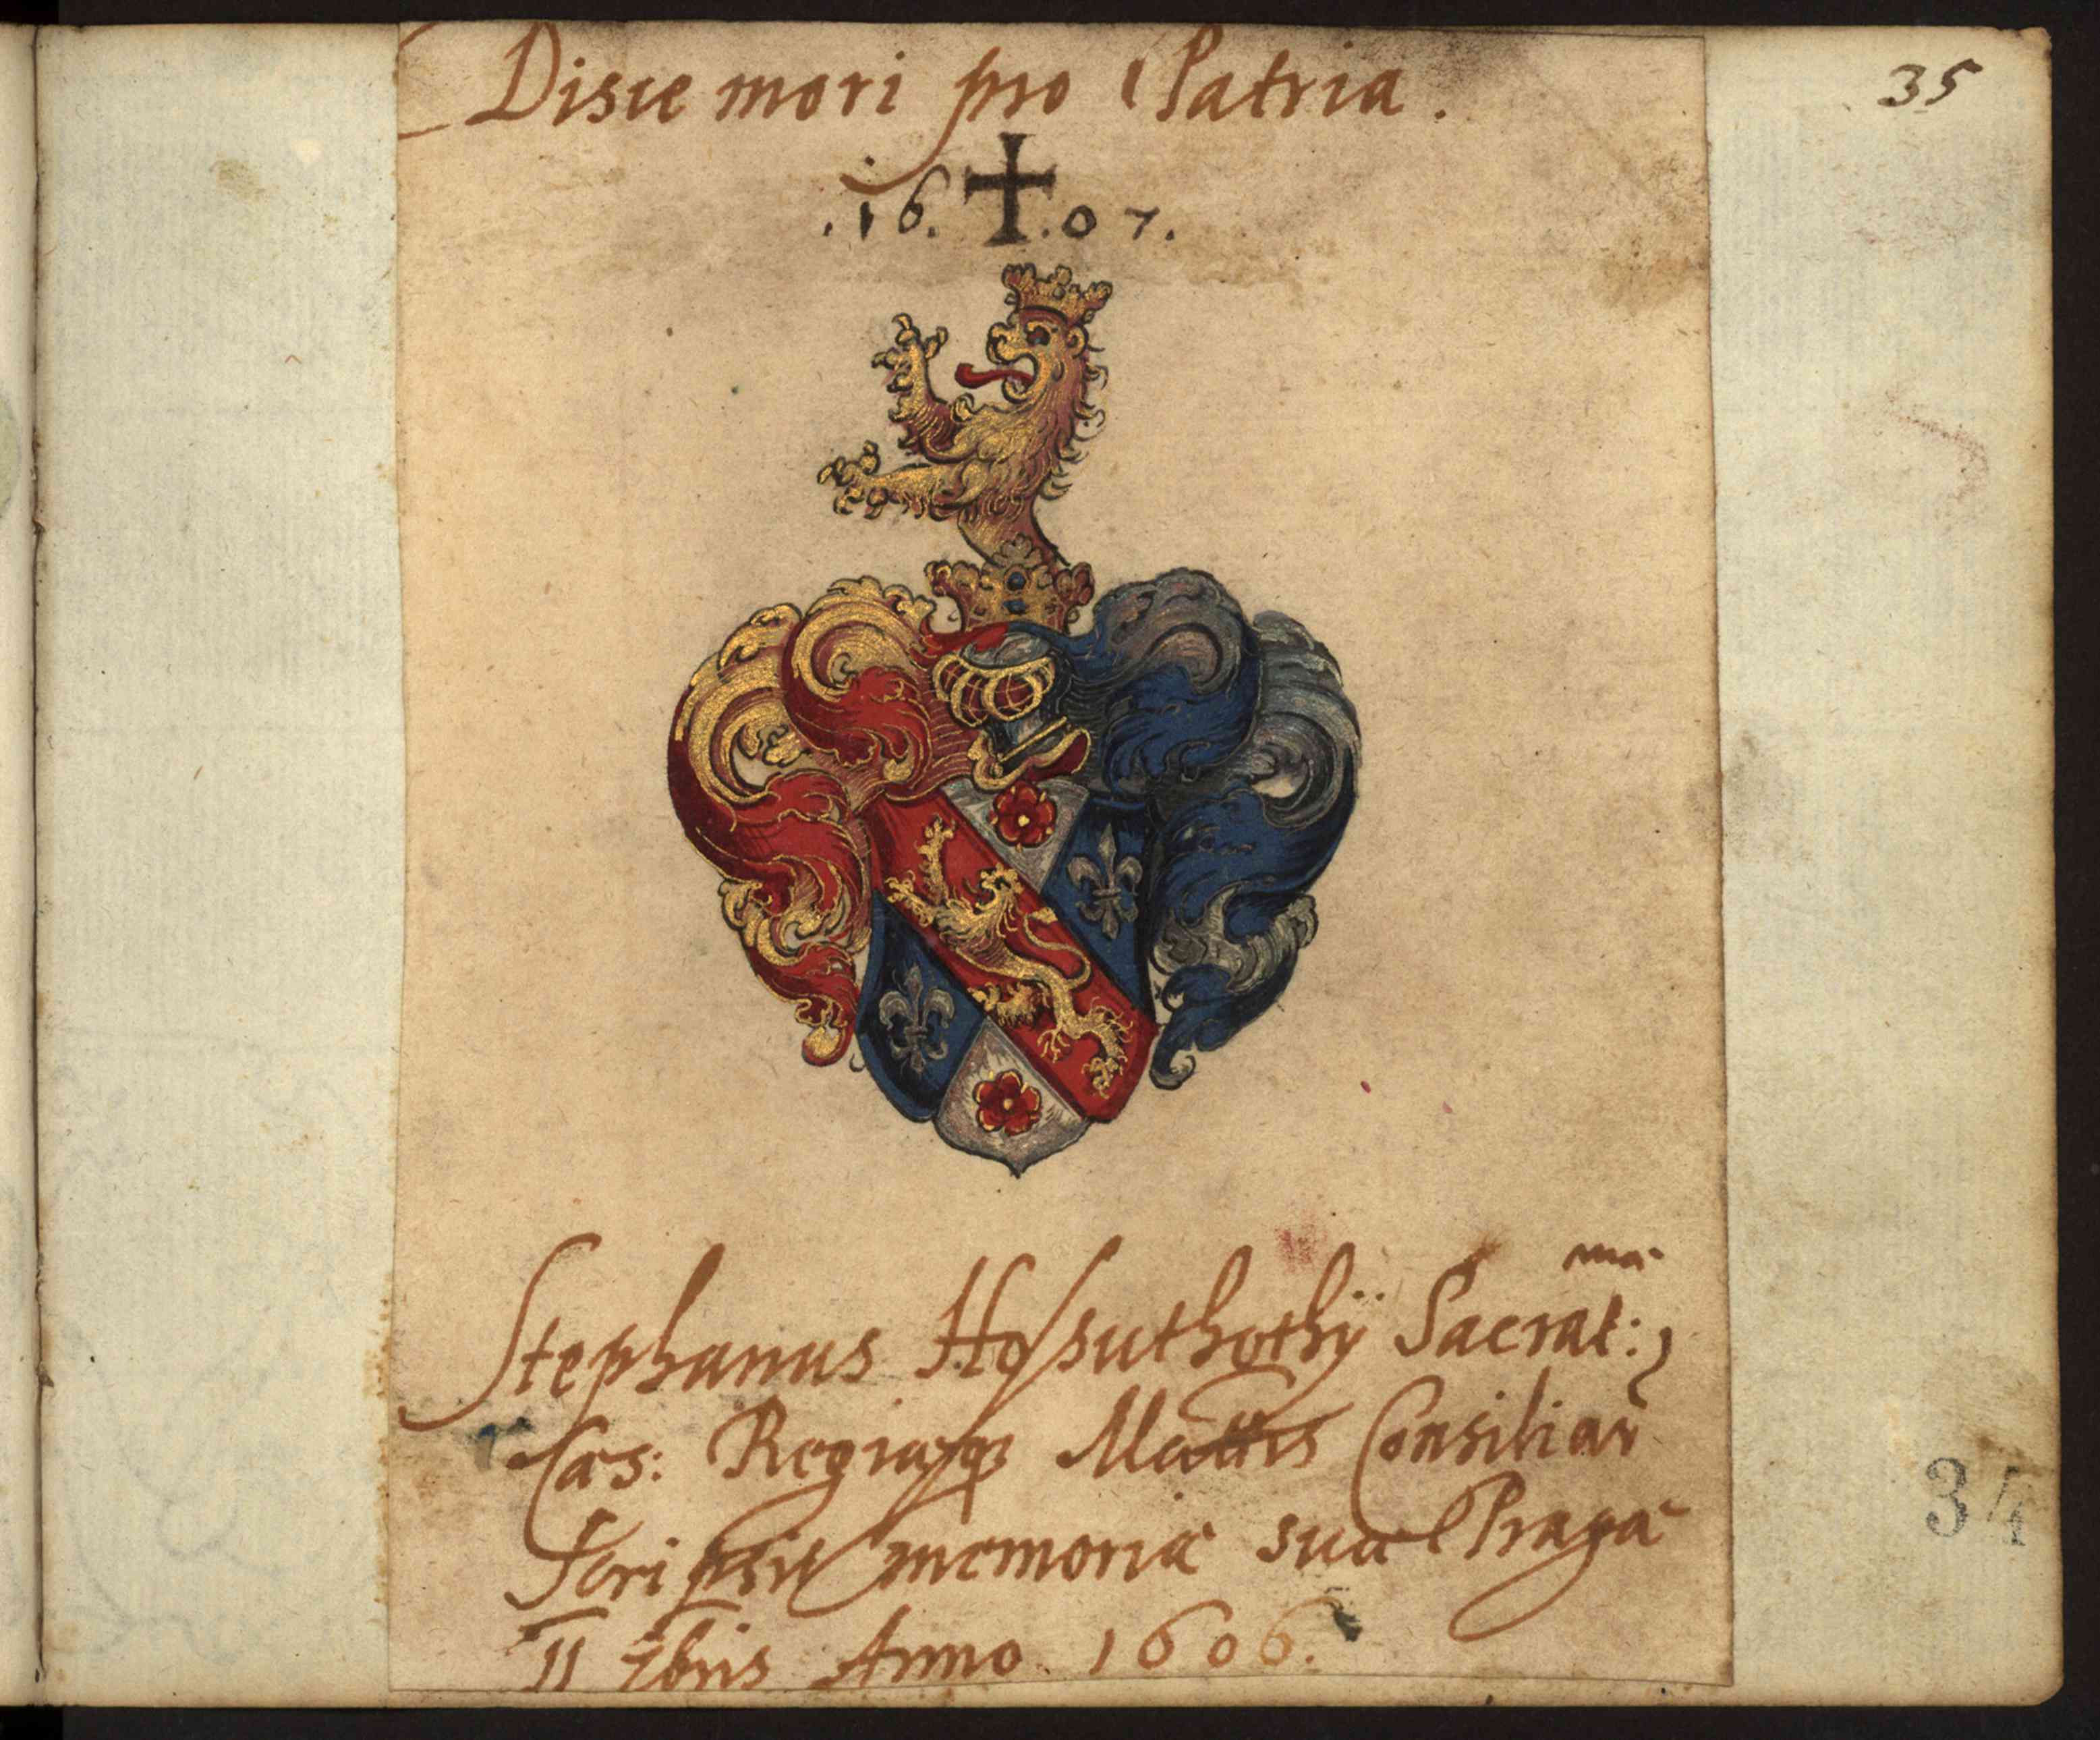 Disce mori pro Patria.
35
.16. .07.
Stephanus Hossuthothÿ Sacrat: mæ
Cæs: Regiæq Mattis Consiliar
Scripsit memoriæ suæ Pragæ
II 7bris Anno 1606.
34